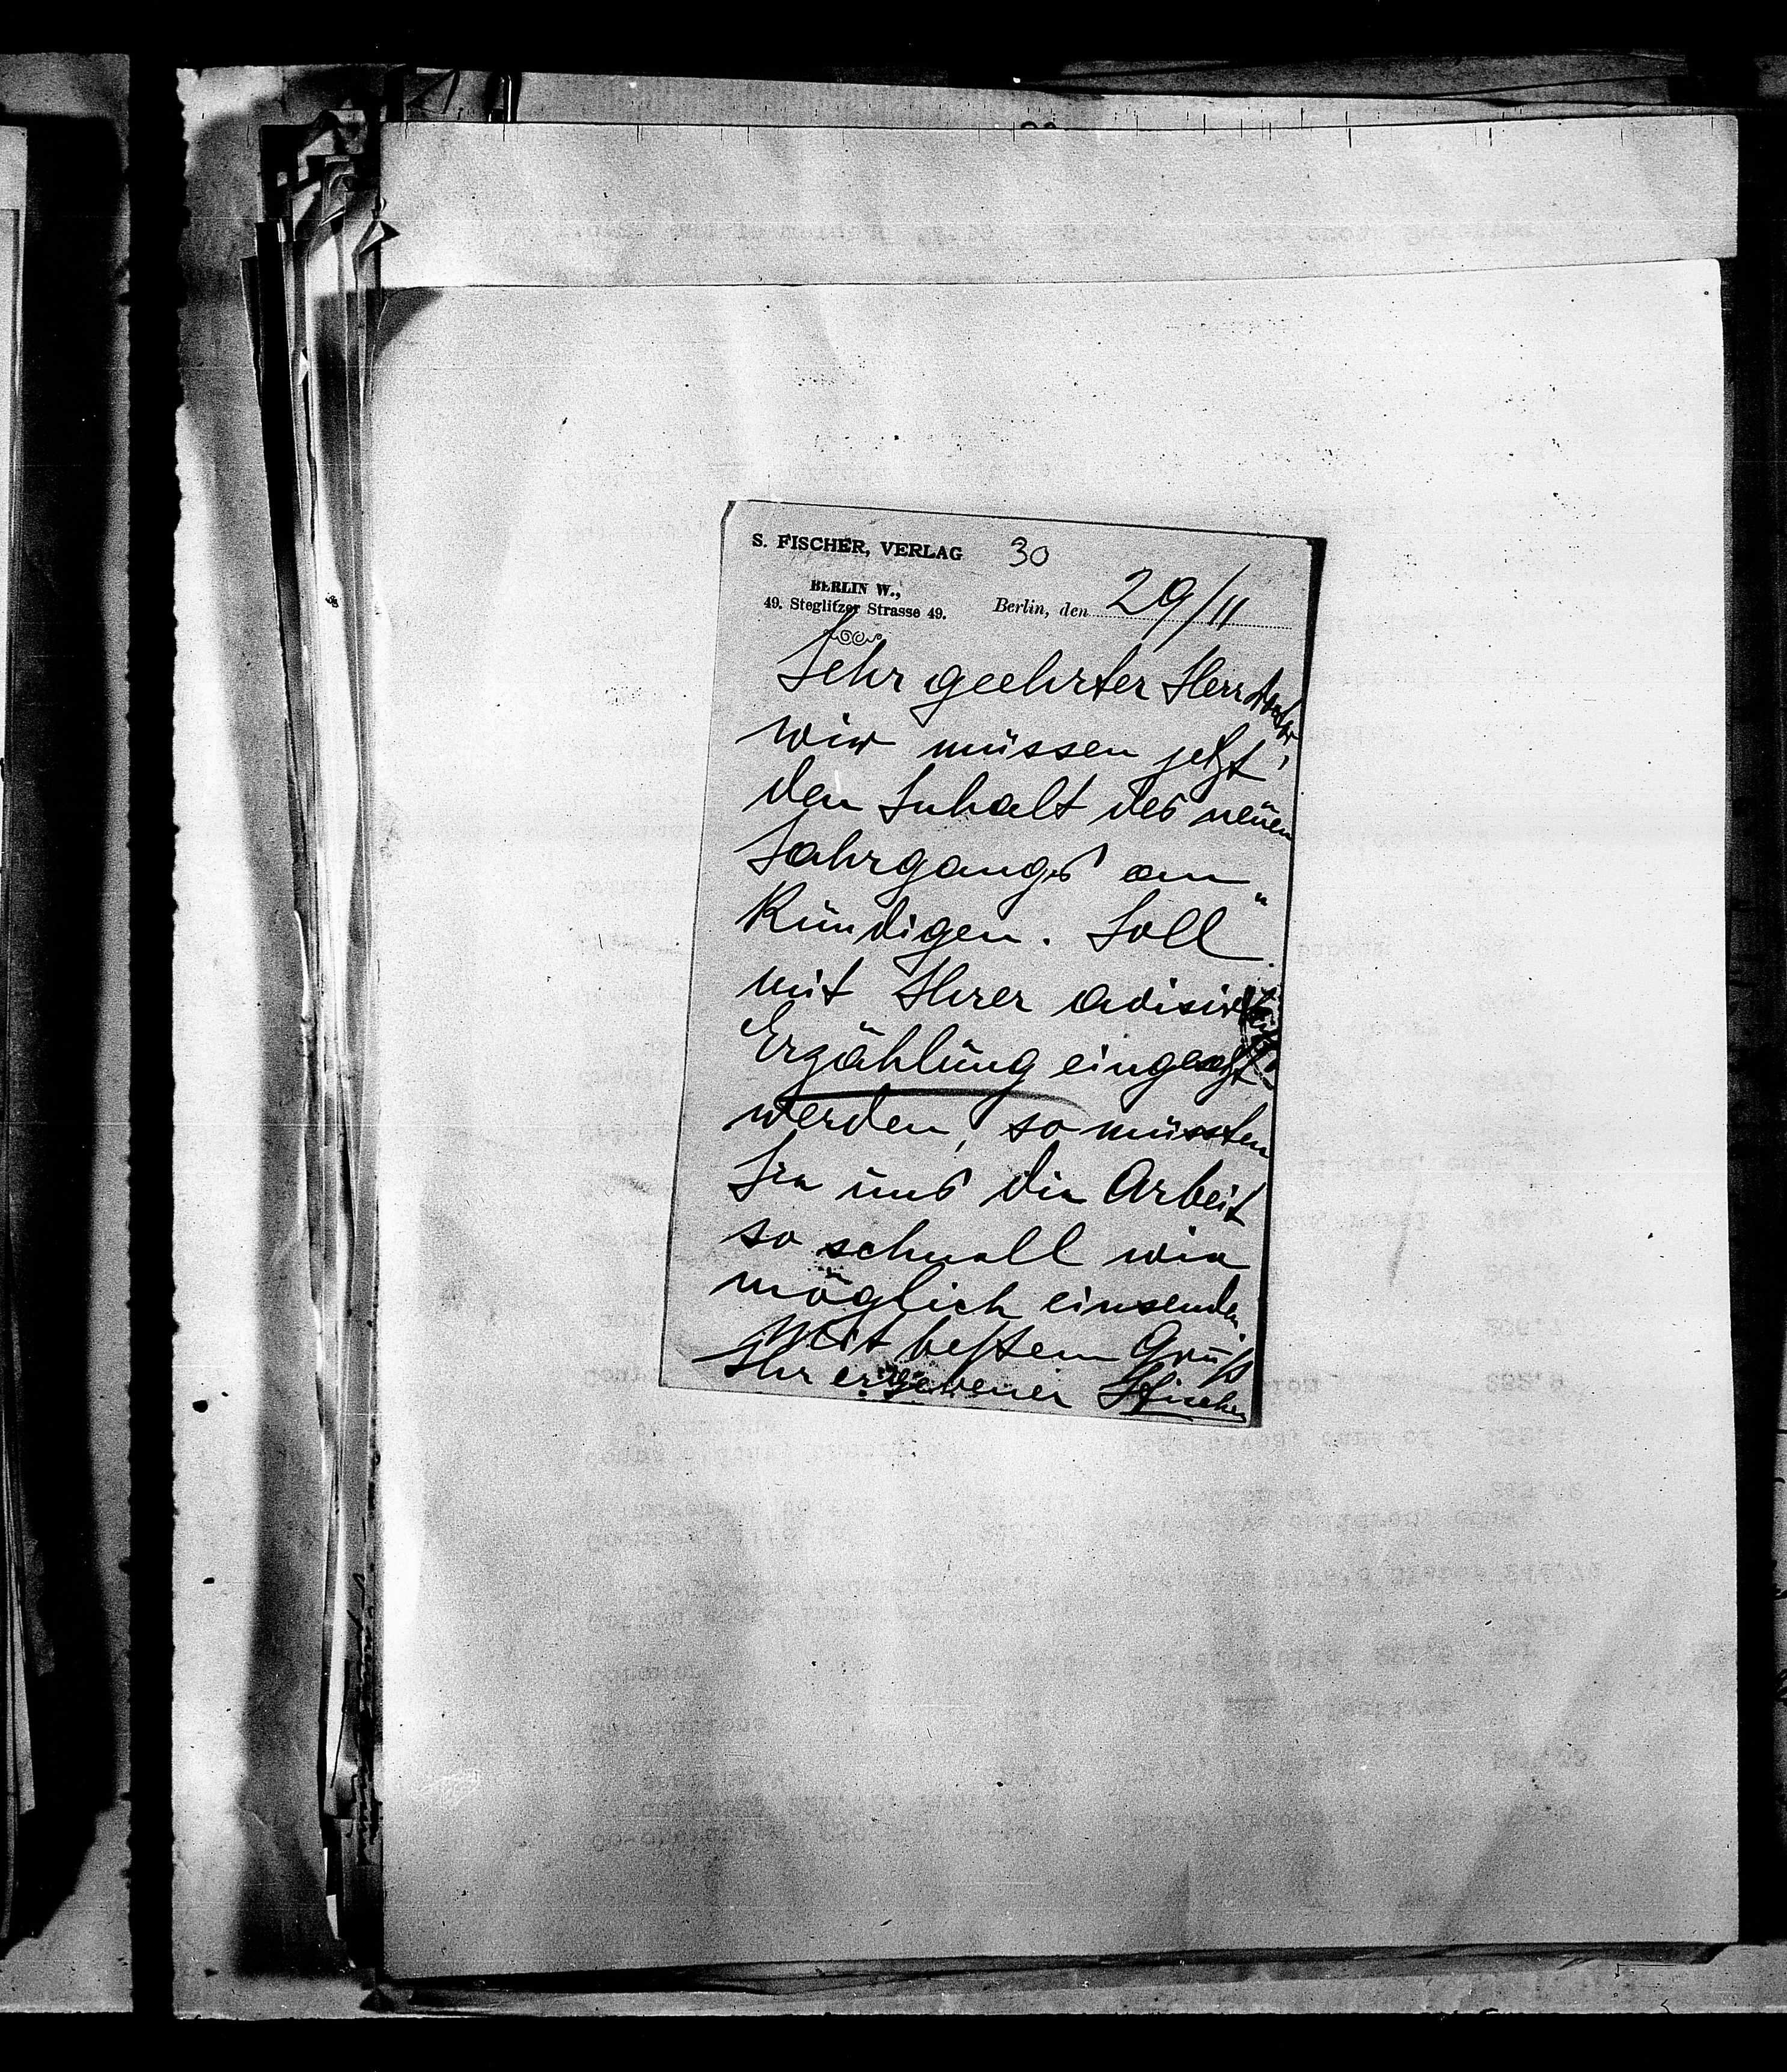 S. FISCHER, VERLAG 30
BERLIN W.,
49. Steglitzer Strasse 49. Berlin, den 29/11
Sehr geehrter Herr Doctor,
wir müssen jetzt
den Inhalt des neuen
Jahrgangs an-
kündigen. Soll
mit Ihrer avisirten
Erzählung eingesetzt
werden, so müssten
Sie uns die Arbeit
so schnell wie
möglich einsenden.
Mit bestem Gruß
Ihr ergebener SFischer